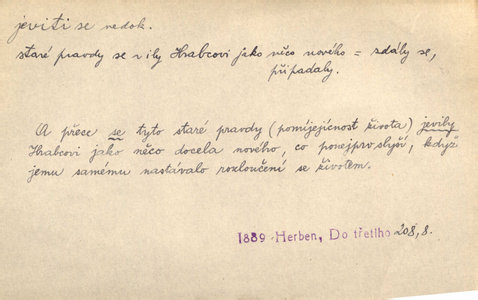 jeviti se nedok.
staré pravdy se jevily Hrabcovi jako něco nového = zdály se,
připadaly.
A přece se tyto staré pravdy (pomíjejícnost života) jevily
Hrabcovi jako něco docela nového, co ponejprv slyší, když
jemu samému nastávalo rozloučení se životem.
1889 Herben, Do třetího 208,8.